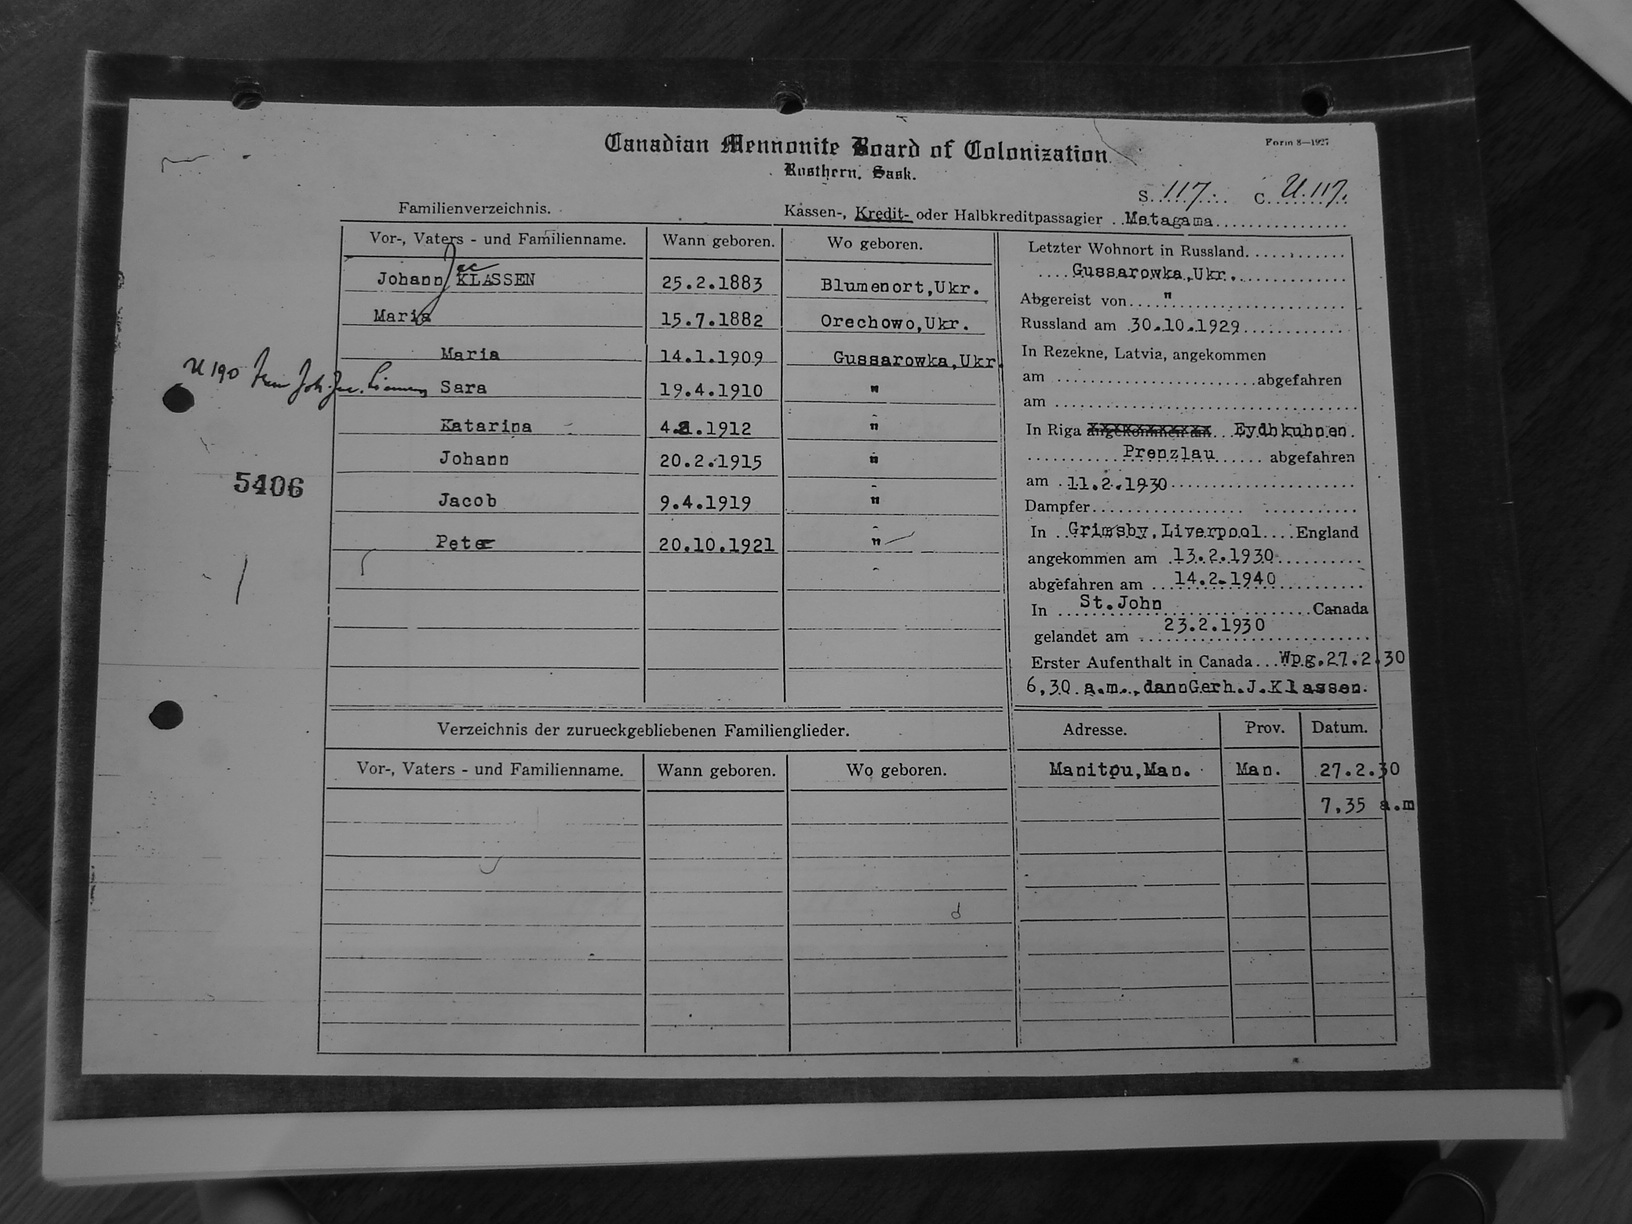 Canadian Mennonite Board of Colonization
Form 8—1927
Rosthern, Sask.
S. 117. C. U.117.
Familienverzeichnis.
Kassen-, Kredit- oder Halbkreditpassagier .. Metagama
Vor-, Vaters - und Familienname. Wann geboren. Wo geboren.
Johann Jac KLASSEN 25.2.1883 Blumenort,Ukr.
Maria 15.7.1882 Orechowo,Ukr.
Maria 14.1.1909 Gussarowka,Ukr
U 190 Joh. Jac.
Sara 19.4.1910 "
Katarina 4. .1912 "
Johann 20.2.1915 "
5406
Jacob 9.4.1919 "
Peter 20.10.1921 "
Letzter Wohnort in Russland
Gussarowka,Ukr.
Abgereist von "
Russland am 30.10.1929
In Rezekne, Latvia, angekommen
am abgefahren
am
In Riga angekommen am Eydhkuhnen.
Prenzlau abgefahren
am 11.2.1930
Dampfer
In Grimsby,Liverpool England
angekommen am 13.2.1930
abgefahren am 14.2.1940
In St.John Canada
gelandet am 23.2.1930
Erster Aufenthalt in Canada Wpg.27.2.30
6,30 a.m.,dannGerh.J.Klassen.
Verzeichnis der zurueckgebliebenen Familienglieder.
Vor-, Vaters - und Familienname. Wann geboren. Wo geboren.
Adresse. Prov. Datum.
Manitou,Man. Man. 27.2.30
7.35 a.m